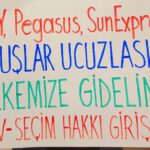 Y, Pegasus, SunExpre
UŞLAR UCUZLAS
LKEMİZE GİDELİM
V-SEÇİM HAKKI GİRİŞ